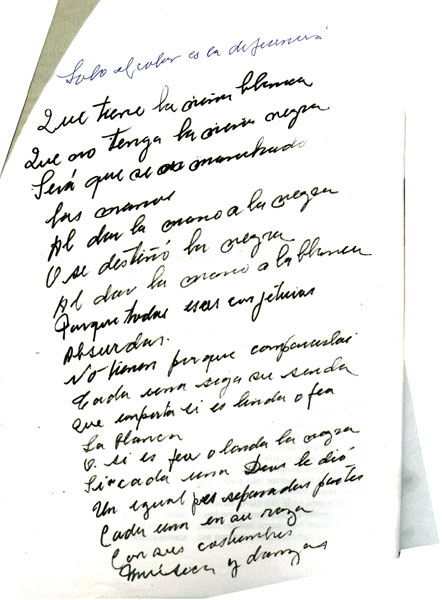 Solo el color es la diferencia
Que tiene la niña blanca
Que no tenga la niña negra
Será que se manchado
las manos
Al dar la mano a la negra
O se destiñó la negra
Al dar la mano a la blanca
Porque todas esas conjeturas
Absurdas.
No tienen porque compararlas
Cada una siga su senda
Que importa si es linda o fea
La blanca
O si es fea o linda la negra
Si a cada una Dios le dió
Un igual por separadas partes
Cada una en su raza
Con sus costumbres
Musica y danzas